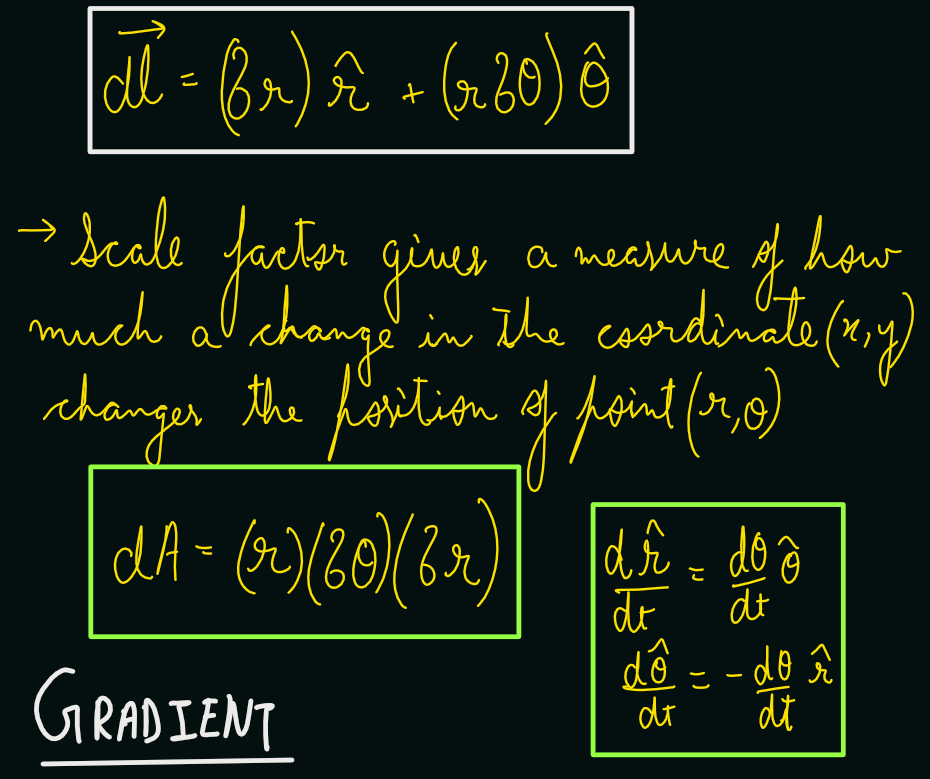 $\vec{dl} = (\delta r)\hat{r} + (r\delta\theta)\hat{\theta}$
→ Scale factor gives a measure of how
much a change in the coordinate (x,y)
changes the position of point (r,θ)
$dA = (r)(\delta\theta)(\delta r)$
$\frac{d\hat{r}}{dt} = \frac{d\theta}{dt}\hat{\theta}$
$\frac{d\hat{\theta}}{dt} = -\frac{d\theta}{dt}\hat{r}$
GRADIENT